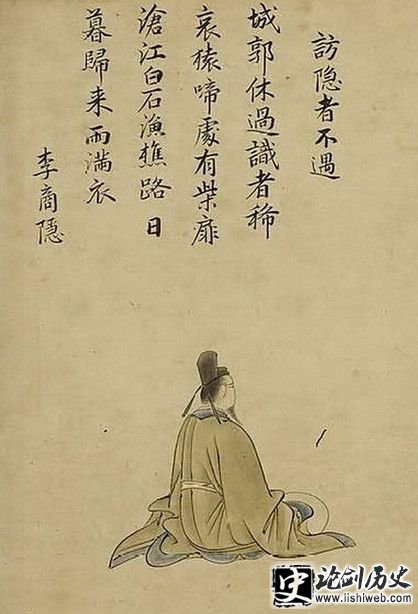 訪隐者不遇
城郭休過識者稀
哀猿啼處有柴扉
滄江白石漁樵路日
暮歸来雨滿衣
李商隱
史
论剑历史
www.lishiweb.com